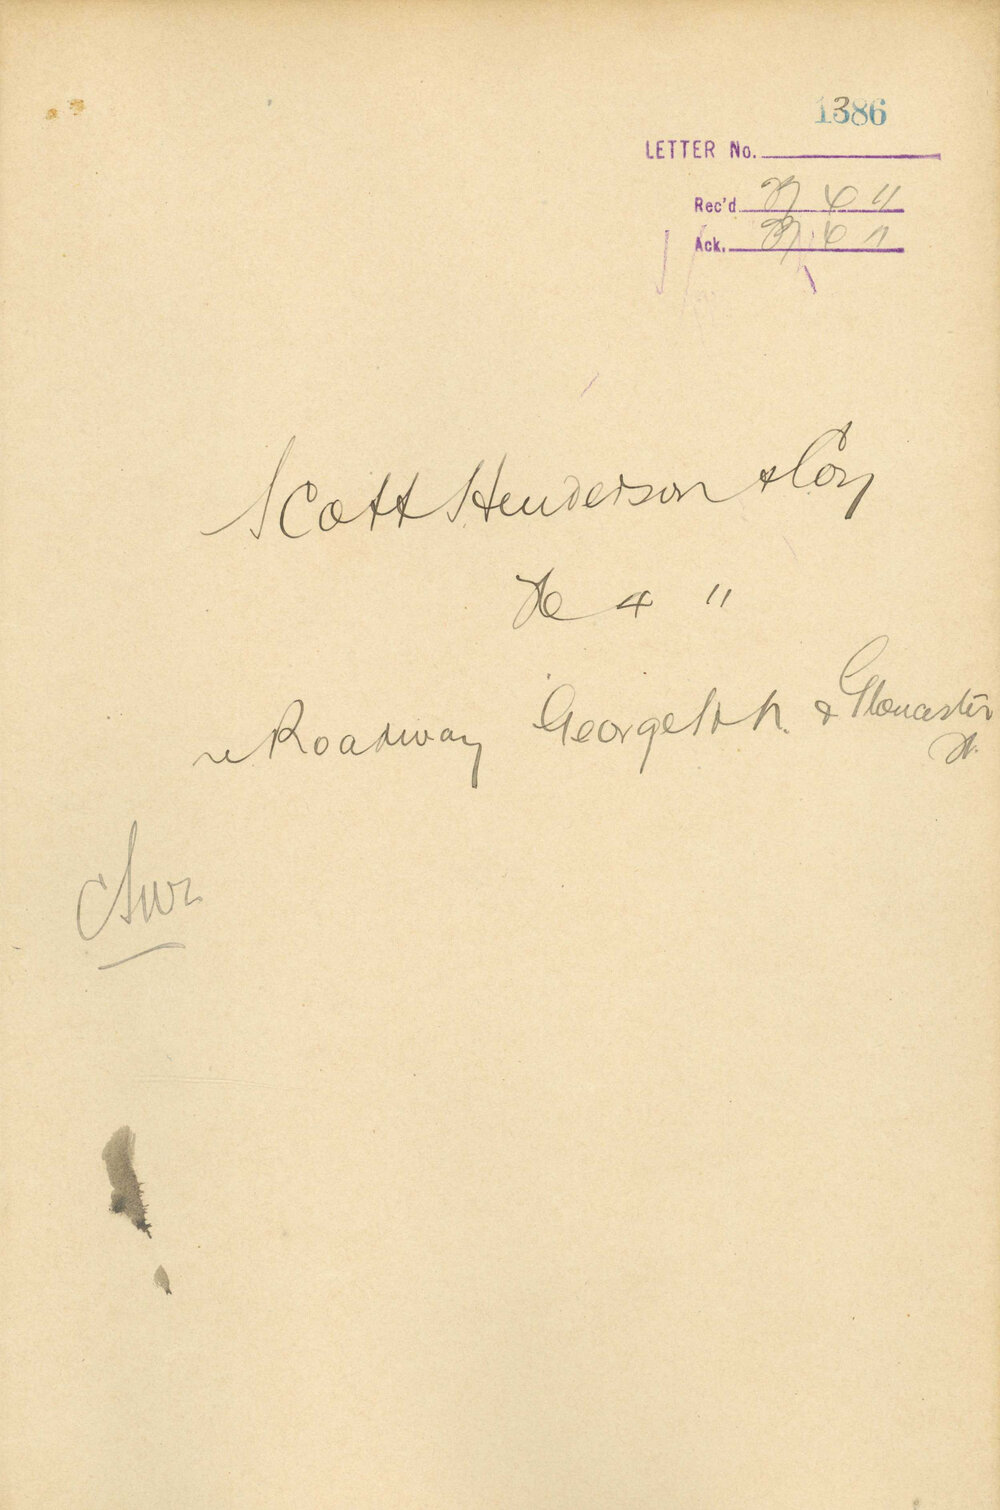 1386
LETTER No.
Rec'd
Ack.
Scott Henderson & Coy
4 "
re Roadway George St N. & Gloucester
St.